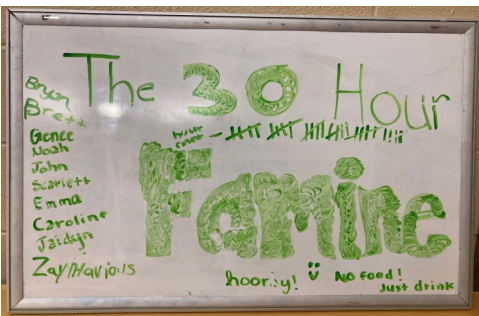 The 30 Hour
Bryan
Brett
Genee
Noah
John
Scarlett
Emma
Caroline
Jaidyn
hour
count -
Famine
hooray!
No food!
Just drink